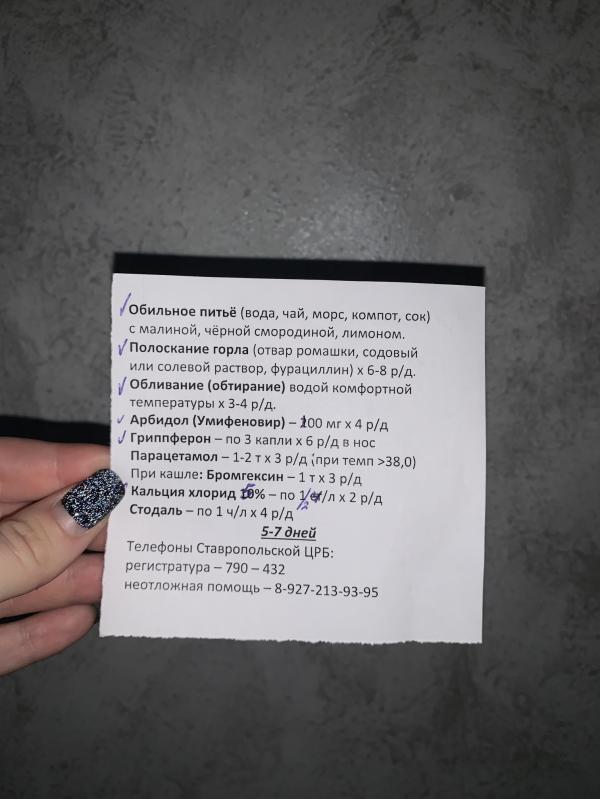 Обильное питьё (вода, чай, морс, компот, сок)
с малиной, чёрной смородиной, лимоном.
Полоскание горла (отвар ромашки, содовый
или солевой раствор, фурациллин) х 6-8 р/д.
Обливание (обтирание) водой комфортной
температуры х 3-4 р/д.
Арбидол (Умифеновир) – 100 мг х 4 р/д
Гриппферон – по 3 капли х 6 р/д в нос
Парацетамол – 1-2 т х 3 р/д (при темп >38,0)
При кашле: Бромгексин – 1 т х 3 р/д
Кальция хлорид – по х 2 р/д
Стодаль – по 1 ч/л х 4 р/д
5-7 дней
Телефоны Ставропольской ЦРБ:
регистратура – 790 – 432
неотложная помощь – 8-927-213-93-95